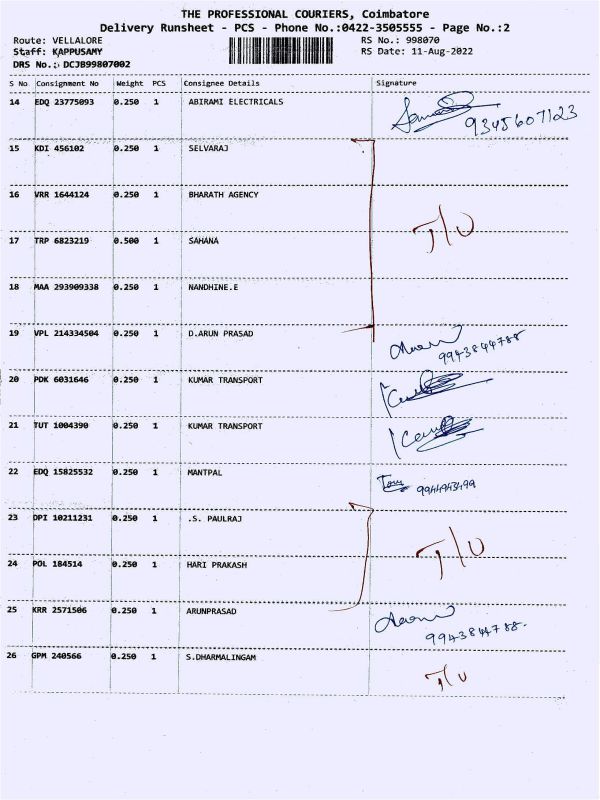 THE PROFESSIONAL COURIERS, Coimbatore
Delivery Runsheet - PCS - Phone No.:0422-3505555 - Page No.:2
Route: VELLALORE RS No.: 998070
Staff: KAPPUSAMY RS Date: 11-Aug-2022
DRS No.: DCJB99807002
S No Consignment No Weight PCS Consignee Details Signature
14 EDQ 23775093 0.250 1 ABIRAMI ELECTRICALS
9345607123
15 KDI 456102 0.250 1 SELVARAJ
16 VRR 1644124 0.250 1 BHARATH AGENCY
T/U
17 TRP 6823219 0.500 1 SAHANA
18 MAA 293909338 0.250 1 NANDHINE.E
19 VPL 214334504 0.250 1 D.ARUN PRASAD
9943844788
20 PDK 6031646 0.250 1 KUMAR TRANSPORT
21 TUT 1004390 0.250 1 KUMAR TRANSPORT
22 EDQ 15825532 0.250 1 MANTPAL
23 DPI 10211231 0.250 1 .S. PAULRAJ
T/U
24 POL 184514 0.250 1 HARI PRAKASH
25 KRR 2571506 0.250 1 ARUNPRASAD
9943844788-
26 GPM 240566 0.250 1 S.DHARMALINGAM
T/U